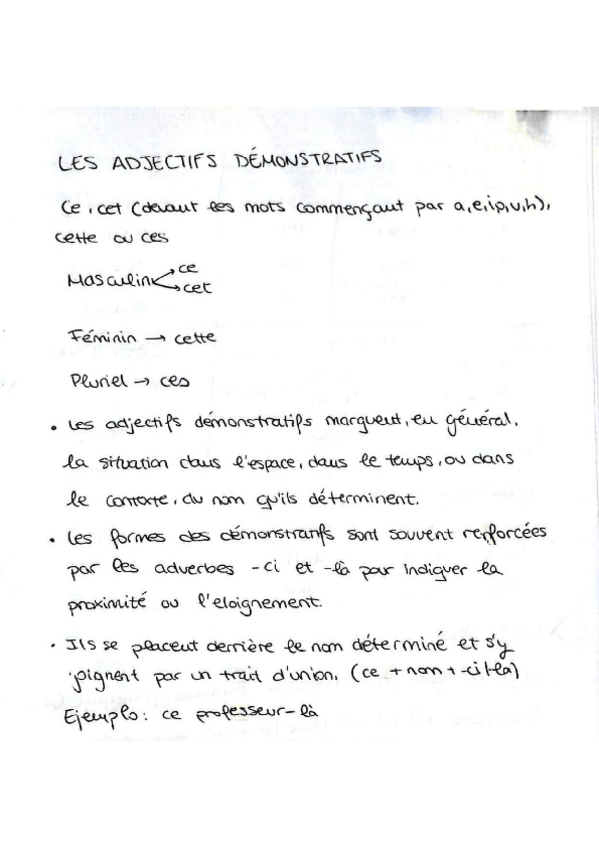 LES ADJECTIFS DÉMONSTRATIFS
Ce, cet (devant les mots commençant par a,e,i,o,u,h),
cette ou ces
Masculin ce
cet
Féminin → cette
Pluriel → ces
• Les adjectifs démonstratifs marquent, en général,
la situation dans l'espace, dans le temps, ou dans
le contexte, du nom qu'ils déterminent.
• Les formes des démonstratifs sont souvent renforcées
par les adverbes -ci et -là pour indiquer la
proximité ou l'eloignement.
• Ils se placent derrière le nom déterminé et s'y
joignent par un trait d'union. (ce + nom + -ci/-la)
Ejemplo: ce professeur-là